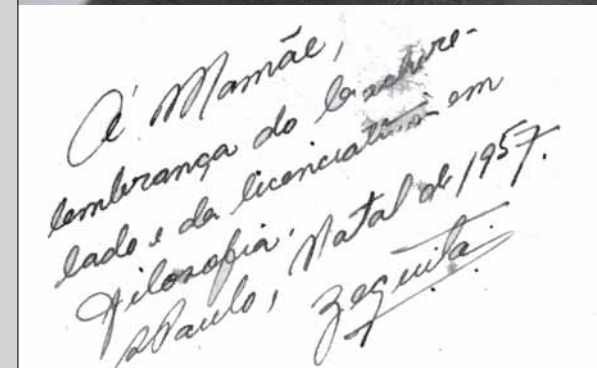 À Mamãe,
lembrança do bachare-
lado e da licenciatura em
Filosofia.
S Paulo, Natal de 1957.
Zequita